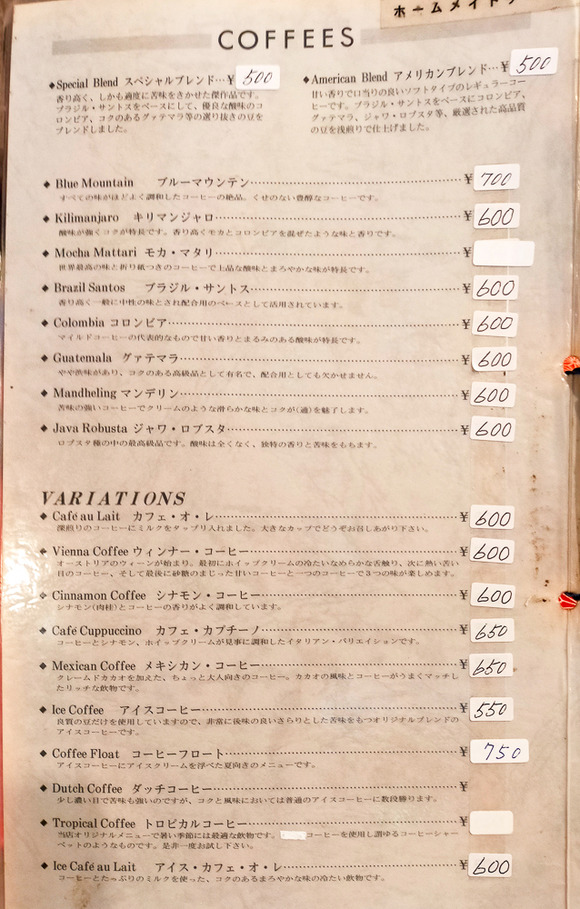 ホームメイド
COFFEES
◆Special Blend スペシャルブレンド…¥ 500
香り高く、しかも適度に苦味をきかせた傑作品です。
ブラジル・サントスをベースにして、優良な酸味のコ
ロンビア、コクのあるグァテマラ等の選り抜きの豆を
ブレンドしました。
◆American Blend アメリカンブレンド…¥ 500
甘い香りで口当りの良いソフトタイプのレギュラーコー
ヒーです。ブラジル・サントスをベースにコロンビア、
グァテマラ、ジャワ・ロブスタ等、厳選された高品質
の豆を浅煎りで仕上げました。
◆ Blue Mountain ブルーマウンテン…¥ 700
すべての味がほどよく調和したコーヒーの絶品。くせのない豊醇なコーヒーです。
◆ Kilimanjaro キリマンジャロ…¥ 600
酸味が強くコクが特長です。香り高くモカとコロンビアを混ぜたような味と香りです。
◆ Mocha Mattari モカ・マタリ…¥
世界最高の味と折り紙つきのコーヒーで上品な酸味とまろやかな味が特長です。
◆ Brazil Santos ブラジル・サントス…¥ 600
香り高く一般に中性の味とされ配合用のベースとして活用されています。
◆ Colombia コロンビア…¥ 600
マイルドコーヒーの代表的なもので甘い香りとまるみのある酸味が特長です。
◆ Guatemala グァテマラ…¥ 600
やや渋味があり、コクのある高級品として有名で、配合用としても欠かせません。
◆ Mandheling マンデリン…¥ 600
苦味の強いコーヒーでクリームのような滑らかな味とコクが(通)を魅了します。
◆ Java Robusta ジャワ・ロブスタ…¥ 600
ロブスタ種の中の最高級品です。酸味は全くなく、独特の香りと苦味をもちます。
VARIATIONS
◆ Café au Lait カフェ・オ・レ…¥ 600
深煎りのコーヒーにミルクをタップリ入れました。大きなカップでどうぞお召しあがり下さい。
◆ Vienna Coffee ウィンナー・コーヒー…¥ 600
オーストリアのウィーンが始まり。最初にホイップクリームの冷たいなめらかな舌触り、次に熱い苦い
目のコーヒー、そして最後に砂糖のまじった甘いコーヒーと一つのコーヒーで3つの味が楽しめます。
◆ Cinnamon Coffee シナモン・コーヒー…¥ 600
シナモン(肉桂)とコーヒーの香りがよく調和しています。
◆ Café Cuppuccino カフェ・カプチーノ…¥ 650
コーヒーとシナモン、ホイップクリームが見事に調和したイタリアン・バリエイションです。
◆ Mexican Coffee メキシカン・コーヒー…¥ 650
クレームドカカオを加えた、ちょっと大人向きのコーヒー。カカオの風味とコーヒーがうまくマッチし
たリッチな飲物です。
◆ Ice Coffee アイスコーヒー…¥ 550
良質の豆だけを使用していますので、非常に後味の良いさらりとした苦味をもつオリジナルブレンドの
アイスコーヒーです。
◆ Coffee Float コーヒーフロート…¥ 750
アイスコーヒーにアイスクリームを浮べた夏向きのメニューです。
◆ Dutch Coffee ダッチコーヒー…¥
少し濃い目で苦味も強いのですが、コクと風味においては普通のアイスコーヒーに数段勝ります。
◆ Tropical Coffee トロピカルコーヒー…¥
当店オリジナルメニューで暑い季節には最適な飲物です。コーヒーを使用し謂ゆるコーヒーシャー
ベットのようなものです。是非一度お試し下さい。
◆ Ice Café au Lait アイス・カフェ・オ・レ…¥ 600
コーヒーとたっぷりのミルクを使った、コクのあるまろやかな味の冷たい飲物です。